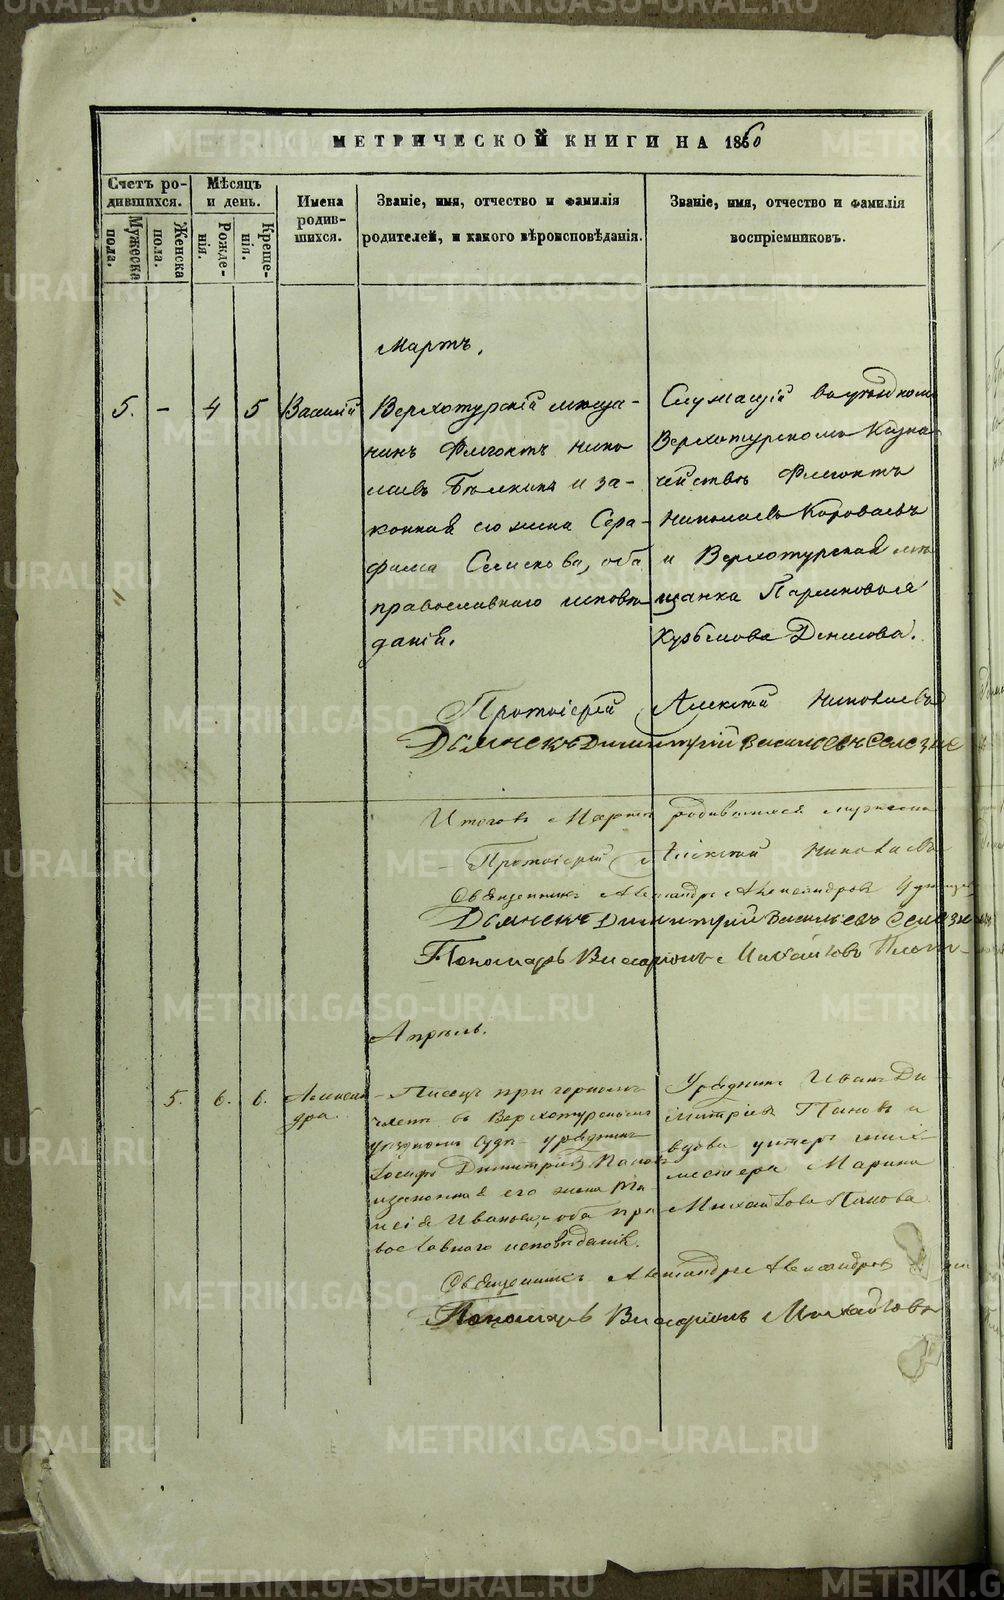 МЕТРИЧЕСКОЙ КНИГИ НА 1860
Счетъ ро-
дившихся.
Мужеска
пола.
Женска
пола.
Мѣсяцъ
и день.
Рожде-
нія.
Креще-
нія.
Имена
родив-
шихся.
Званіе, имя, отчество и фамилія
родителей, и какого вѣроисповѣданія.
Званіе, имя, отчество и фамилія
воспріемниковъ.
Мартъ.
5. - 4 5 Василій
Верхотурскій мѣща-
нинъ Флегонтъ Нико
лаевъ и за-
конная его жена Сера-
фима оба
православнаго исповѣ
данія.
Служащій въ уѣздном
Верхотурскомъ Казна
чействѣ Флегонтъ
Николаевъ Короваевъ
и Верхотурская мѣ
щанка
Денисова.
Протоіерей Алексѣй Николаевъ
Дьячекъ Димитрій Васильевъ Селезне
Итого въ Мартѣ родившихся мужеска
Протоіерей Алексѣй Николаевъ
Священникъ Александръ Александровъ
Дьячекъ Димитрій Васильевъ Селезн
Пономарь Виссаріонъ Михайловъ
Апрѣль.
5. 6. 6. Алексан
дра.
Писецъ при горномъ
членѣ въ Верхотурскомъ
уѣздномъ судѣ урядникъ
Іосифъ Димитріевъ Пановъ
и законная его жена
Иванова, оба пра
вославнаго исповѣданія.
Урядникъ Иванъ Ди
митріевъ Пановъ и
вдова унтеръ шихт-
мейстера Марина
Михайлова Панова
Священникъ Александръ Александровъ
Пономарь Виссаріонъ Михайловъ
METRIKI.GASO-URAL.RU